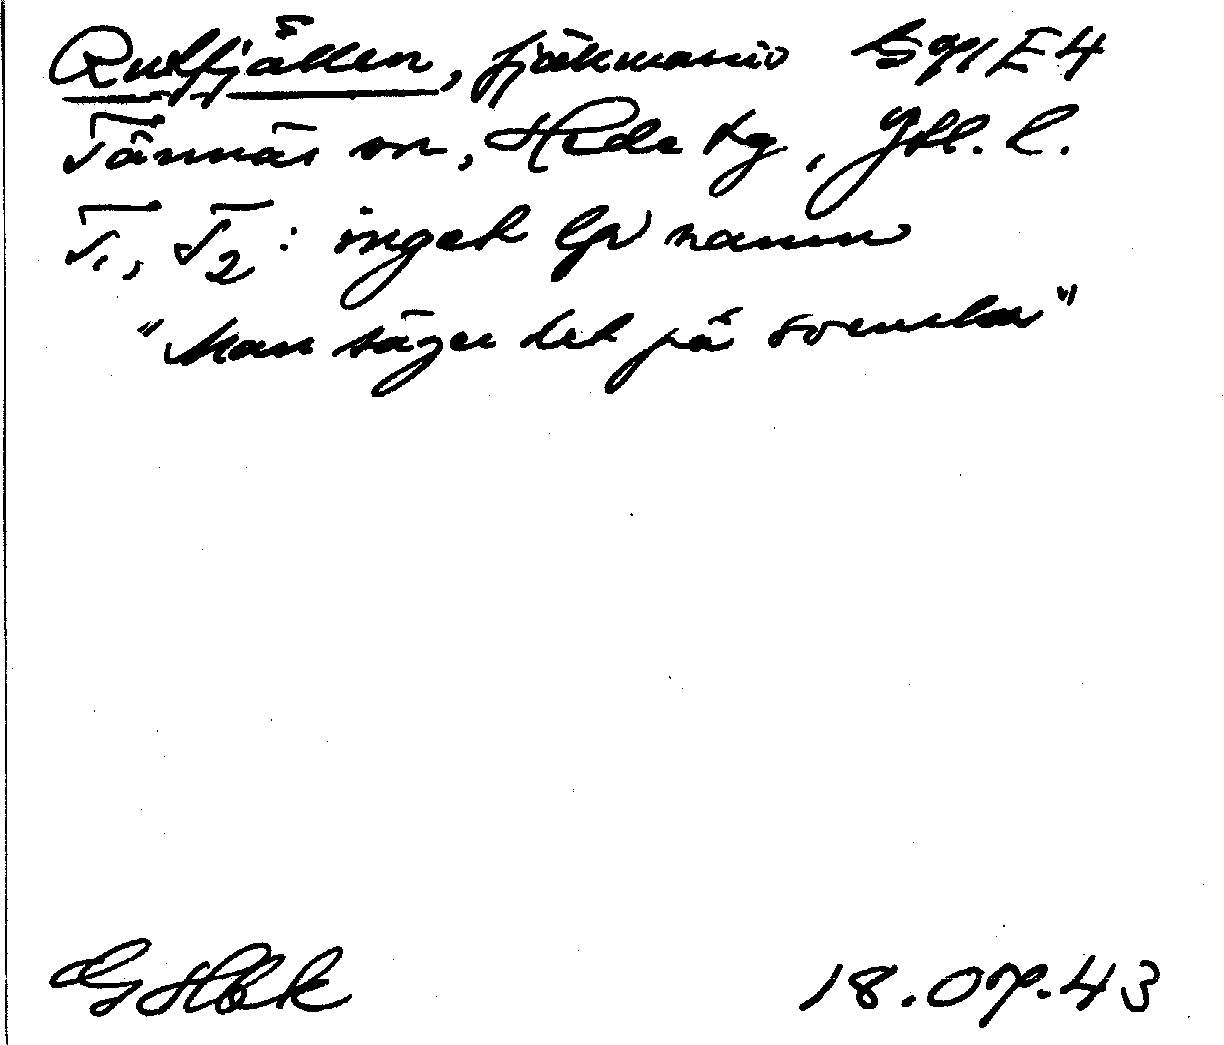 Rutfjällen, fjällmassiv GqlE4
Tännäs sn, Hede tg, Jtl. l.
T1, T2: inget lp namn
"Man säger det på svenska"
GHbk 18.07.43